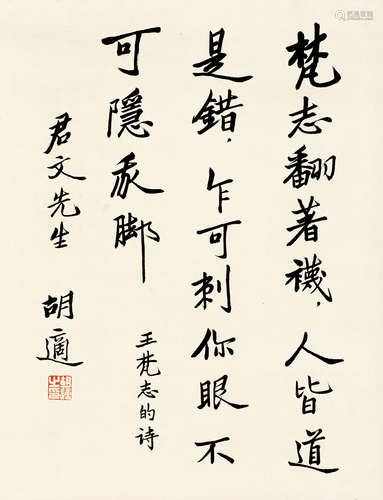 梵志翻著襪，人皆道
是錯，乍可刺你眼不
可隱我脚
王梵志的詩
君文先生
胡適